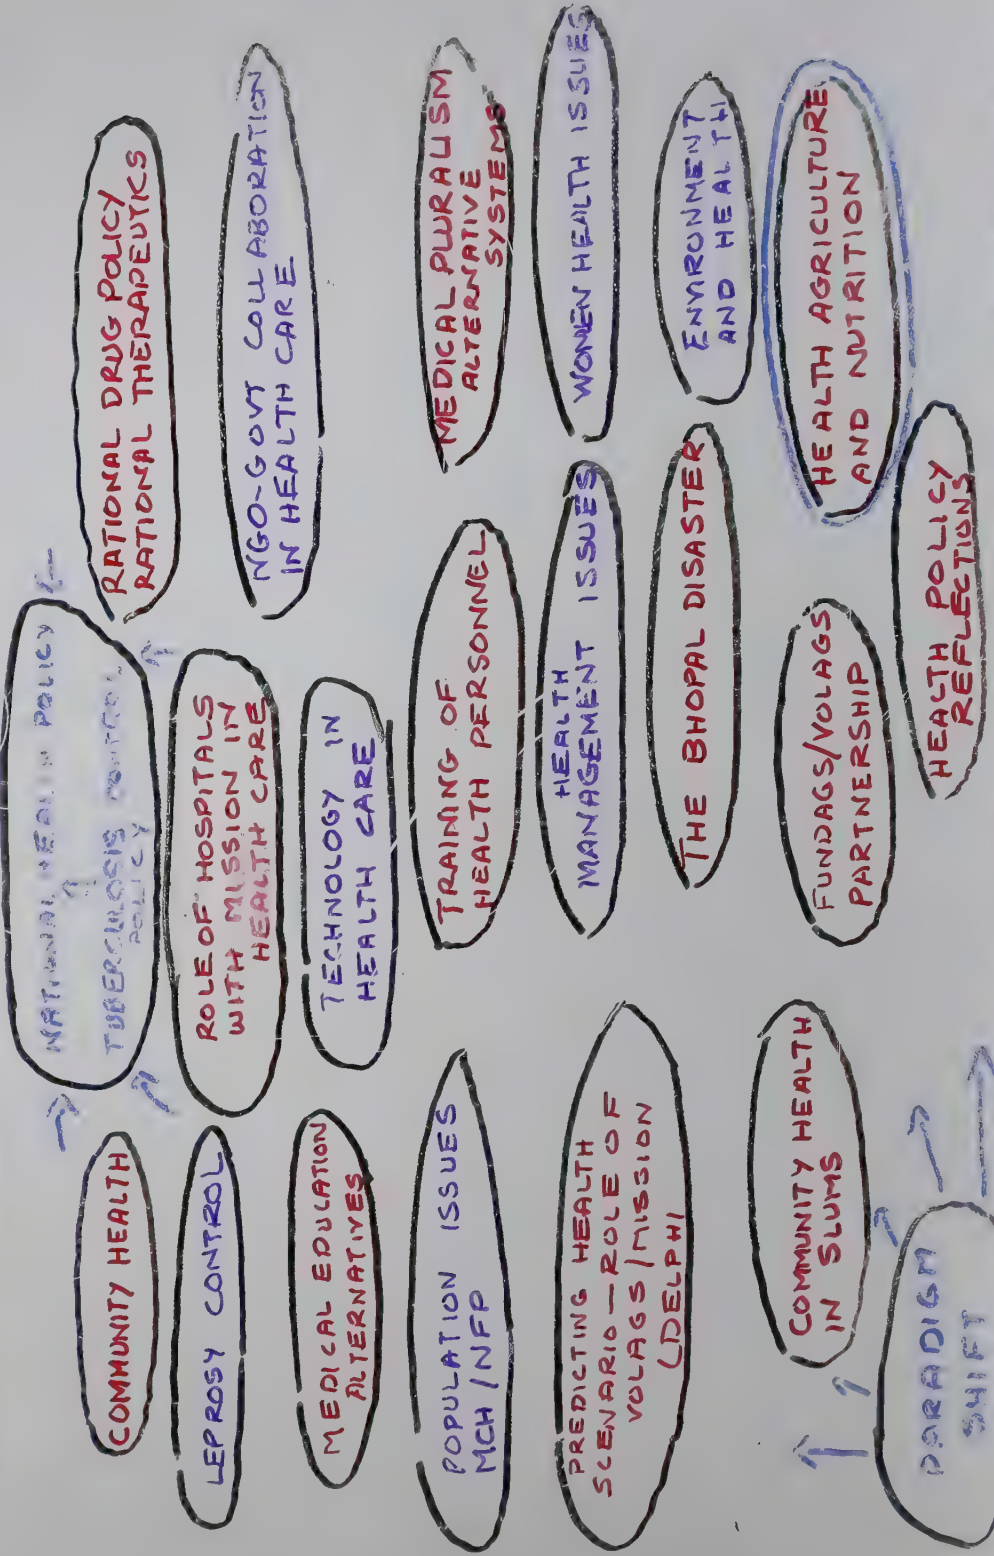 COMMUNITY HEALTH
LEPROSY CONTROL
MEDICAL EDUCATION
ALTERNATIVES
POPULATION ISSUES
MCH/NFP
PREDICTING HEALTH
SCENARIO — ROLE OF
VOLAGS/MISSION
(DELPHI
COMMUNITY HEALTH
IN SLUMS
PARADIGM
SHIFT
NATIONAL HEALTH POLICY
TUBERCULOSIS CONTROL
POLICY
ROLE OF HOSPITALS
WITH MISSION IN
HEALTH CARE
TECHNOLOGY IN
HEALTH CARE
TRAINING OF
HEALTH PERSONNEL
HEALTH
MANAGEMENT ISSUES
THE BHOPAL DISASTER
FUNDAGS/VOLAGS
PARTNERSHIP
HEALTH POLICY
REFLECTIONS
RATIONAL DRUG POLICY
RATIONAL THERAPEUTICS
NGO-GOVT COLLABORATION
IN HEALTH CARE
MEDICAL PLURALISM
ALTERNATIVE
SYSTEMS
WOMEN HEALTH ISSUES
ENVIRONMENT
AND HEALTH
HEALTH AGRICULTURE
AND NUTRITION